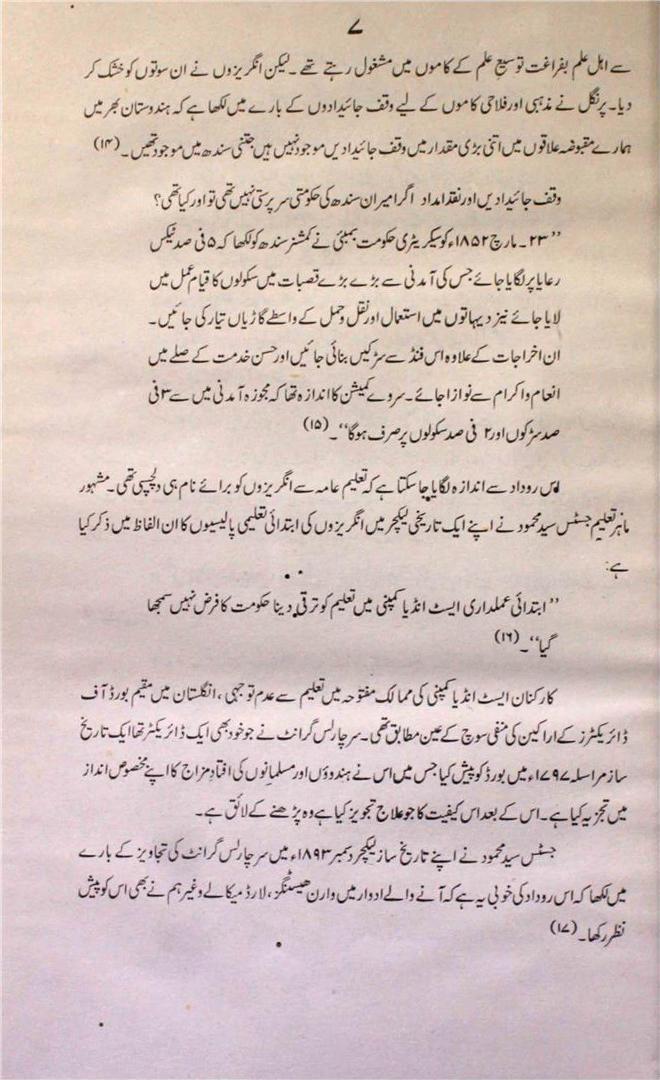 ۷
سے اہل علم بفراغت توسیع علم کے کاموں میں مشغول رہتے تھے ۔ لیکن انگریزوں نے ان سوتوں کو خشک کر
دیا۔ پرنگل نے مذہبی اور فلاحی کاموں کے لیے وقف جائیدادوں کے بارے میں لکھا ہے کہ ہندوستان بھر میں
ہمارے مقبوضہ علاقوں میں اتنی بڑی مقدار میں وقف جائیدادیں موجود نہیں ہیں جتنی سندھ میں موجود تھیں۔ (۱۴)
وقف جائیدادیں اور نقد امداد اگر امیران سندھ کی حکومتی سرپرستی نہیں تھی تو اور کیا تھی؟
’’ ۲۳۔ مارچ ۱۸۵۲ء کو سیکریٹری حکومت بمبئی نے کمشنر سندھ کو لکھا کہ ۵ فی صد ٹیکس
رعایا پر لگایا جائے جس کی آمدنی سے بڑے بڑے قصبات میں سکولوں کا قیام عمل میں
لایا جائے نیز دیہاتوں میں استعمال اور نقل و حمل کے واسطے گاڑیاں تیار کی جائیں۔
ان اخراجات کے علاوہ اس فنڈ سے سڑکیں بنائی جائیں اور حسن خدمت کے صلے میں
انعام و اکرام سے نوازا جائے۔ سروے کمیشن کا اندازہ تھا کہ مجوزہ آمدنی میں سے ۳ فی
صد سڑکوں اور ۲ فی صد سکولوں پر صرف ہوگا‘‘۔ (۱۵)
اس روداد سے اندازہ لگایا جا سکتا ہے کہ تعلیم عامہ سے انگریزوں کو برائے نام ہی دلچسپی تھی۔ مشہور
ماہر تعلیم جسٹس سید محمود نے اپنے ایک تاریخی لیکچر میں انگریزوں کی ابتدائی تعلیمی پالیسیوں کا ان الفاظ میں ذکر کیا
ہے:
’’ ابتدائی عملداری ایسٹ انڈیا کمپنی میں تعلیم کو ترقی دینا حکومت کا فرض نہیں سمجھا
گیا‘‘۔ (۱۶)
کارکنان ایسٹ انڈیا کمپنی کی ممالک مفتوحہ میں تعلیم سے عدم توجہی، انگلستان میں مقیم بورڈ آف
ڈائریکٹرز کے اراکین کی منفی سوچ کے عین مطابق تھی۔ سر چارلس گرانٹ نے جو خود بھی ایک ڈائریکٹر تھا ایک تاریخ
ساز مراسلہ ۱۷۹۷ء میں بورڈ کو پیش کیا جس میں اس نے ہندوؤں اور مسلمانوں کی افتاد مزاج کا اپنے مخصوص انداز
میں تجزیہ کیا ہے۔ اس کے بعد اس کیفیت کا جو علاج تجویز کیا ہے وہ پڑھنے کے لائق ہے۔
جسٹس سید محمود نے اپنے تاریخ ساز لیکچر دسمبر ۱۸۹۳ء میں سر چارلس گرانٹ کی تجاویز کے بارے
میں لکھا کہ اس روداد کی خوبی یہ ہے کہ آنے والے ادوار میں وارن ھیسٹنگز، لارڈ میکالے وغیرہم نے بھی اس کو پیش
نظر رکھا۔ (۱۷)